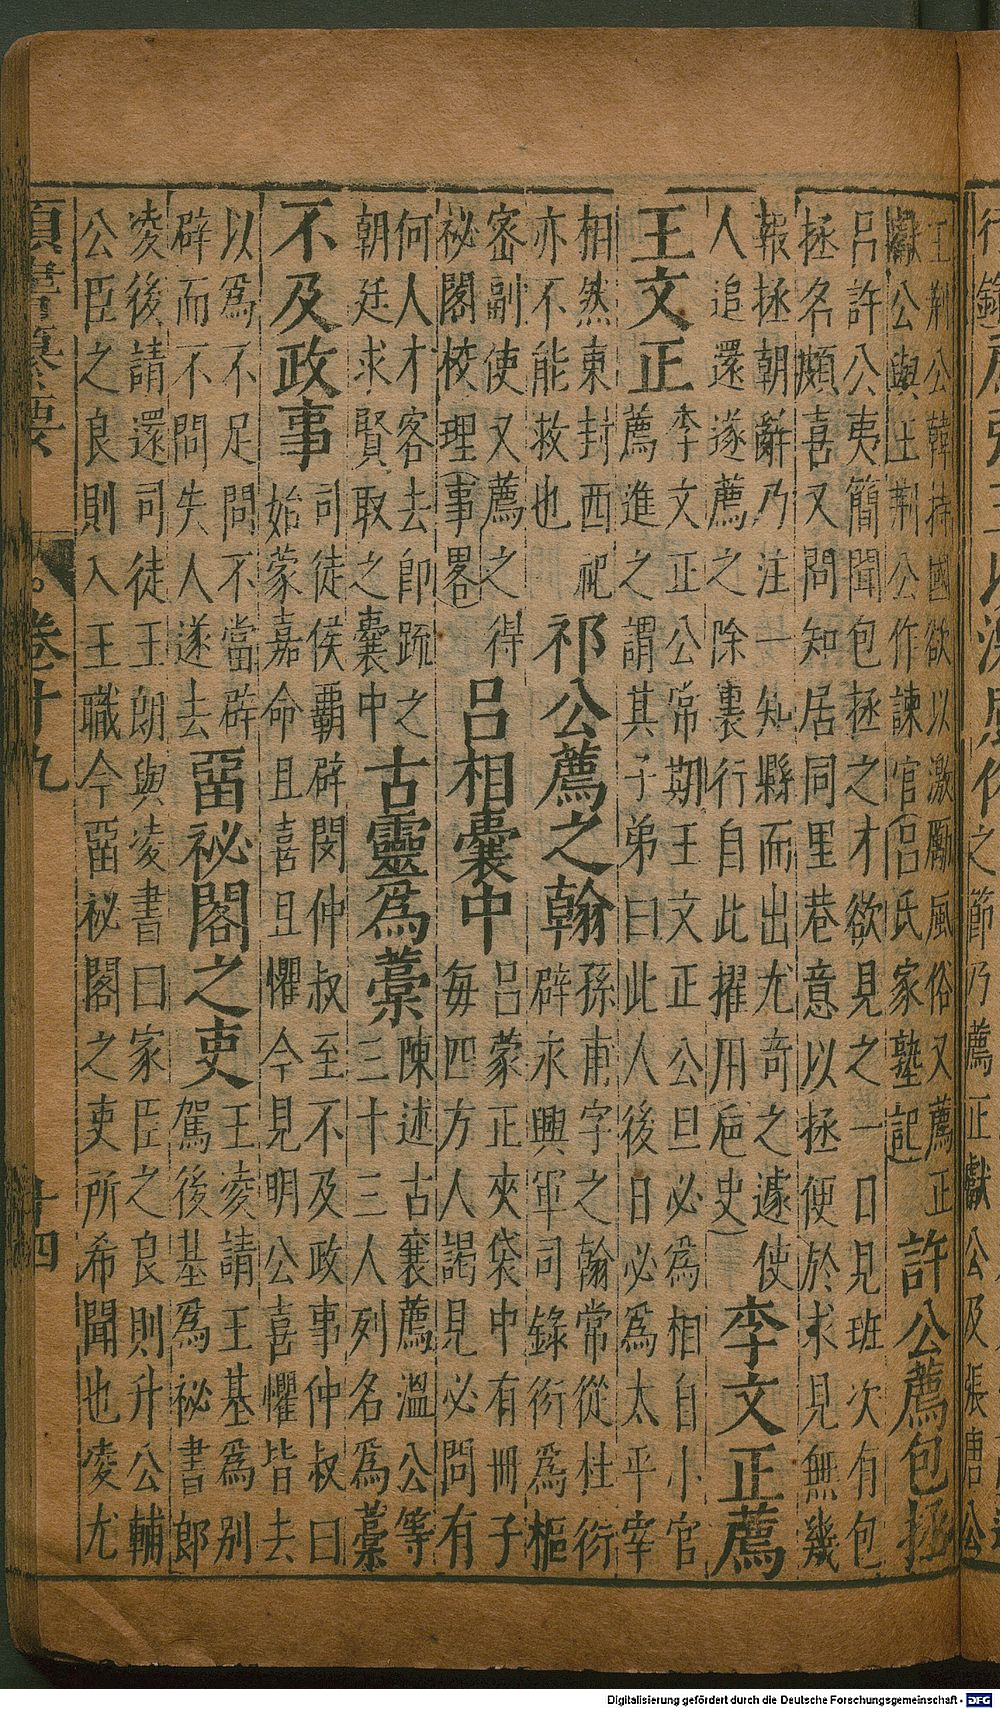 之節乃薦正獻公及張唐公
王荆公韓持國欲以激厲風俗又薦正
獻公與王荆公作諫官(呂氏家塾記)
許公薦包拯
呂許公夷簡聞包拯之才欲見之一日見班次有包
拯名頗喜又問知居同里巷意以拯便於求見無幾
報拯朝辭乃注一知縣而出尤奇之遽使
人追還遂薦之除裏行自此擢用(巵史)
李文正薦
王文正
李文正公常期王文正公旦必為相自小官
薦進之謂其子弟曰此人後日必為太平宰
相然東封西祀
亦不能救也
祁公薦之翰
孫甫字之翰常從杜衍
辟永興軍司錄衍為樞
密副使又薦之得
祕閣校理(事畧)
呂相囊中
呂蒙正夾袋中有冊子
每四方人謁見必問有
何人才客去即疏之
朝廷求賢取之囊中
古靈為藁
陳述古襄薦溫公等
三十三人列名為藁
不及政事
司徒侯霸辟閔仲叔至不及政事仲叔曰
始蒙嘉命且喜且懼今見明公喜懼皆去
以為不足問不當辟
辟而不問失人遂去
畱祕閣之吏
王凌請王基為別
駕後基為祕書郎
凌後請還司徒王朗與凌書曰家臣之良則升公輔
公臣之良則入王職今畱祕閣之吏所希聞也凌尤
卷十九
十四
Digitalisierung gefördert durch die Deutsche Forschungsgemeinschaft - DFG